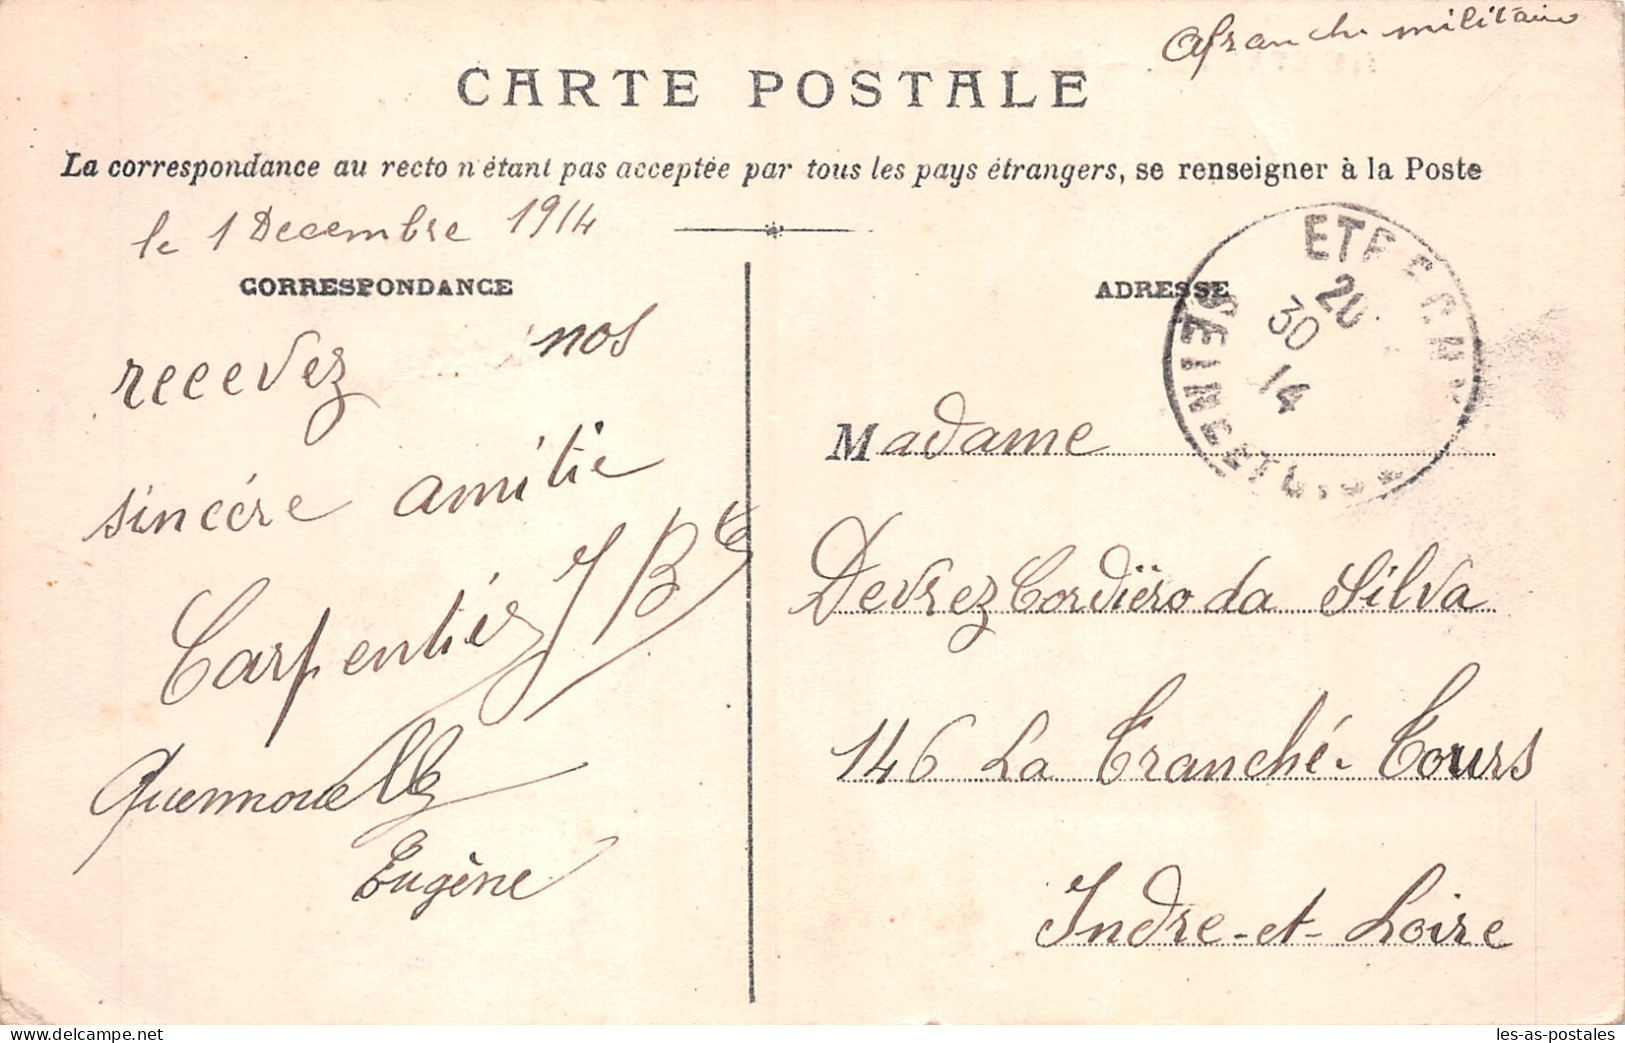 afranchi militaire
CARTE POSTALE
La correspondance au recto n'étant pas acceptée par tous les pays étrangers, se renseigner à la Poste
le 1 Decembre 1914
CORRESPONDANCE
recevez nos
sincére amitie
Carpentier J B
Quennouelle
Eugène
ADRESSE
20
30
14
SEINE ET
Madame
Devrez Cordiëro da Silva
146 La Tranché. Tours
Indre-et-Loire
www.delcampe.net
les-as-postales